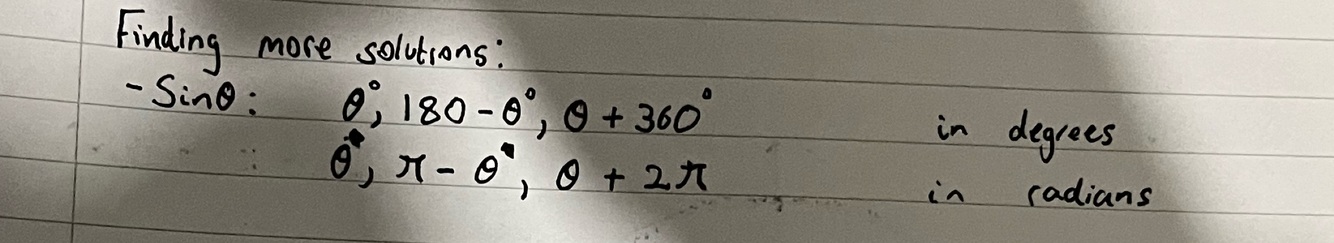 Finding more solutions:
- Sinθ: θ°, 180 - θ°, θ + 360° in degrees
: θ, π - θ, θ + 2π in radians